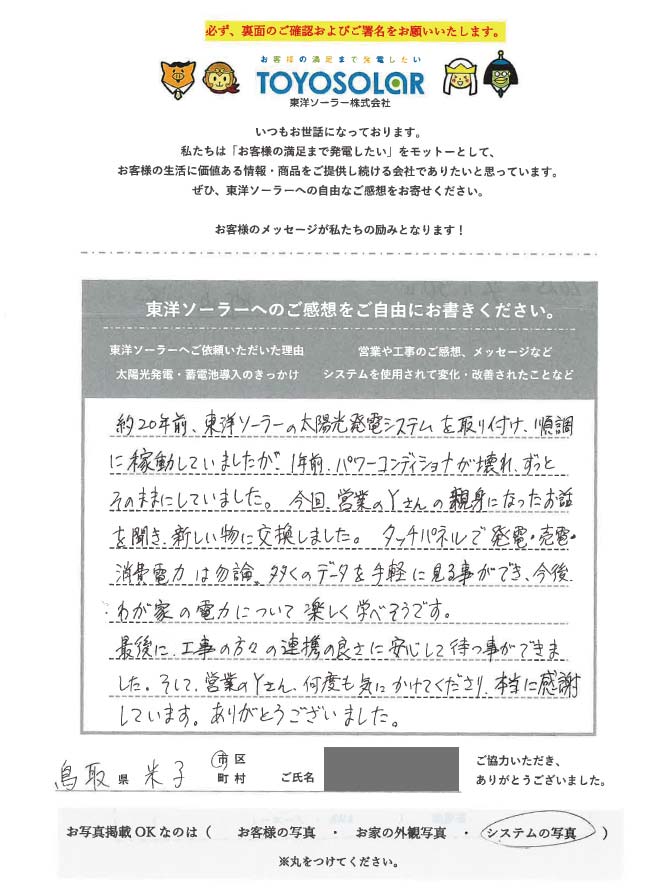 必ず、裏面のご確認およびご署名をお願いいたします。
お客様の満足まで発電したい
TOYOSOLAR
東洋ソーラー株式会社
いつもお世話になっております。
私たちは「お客様の満足まで発電したい」をモットーとして、
お客様の生活に価値ある情報・商品をご提供し続ける会社でありたいと思っています。
ぜひ、東洋ソーラーへの自由なご感想をお寄せください。
お客様のメッセージが私たちの励みとなります！
東洋ソーラーへのご感想をご自由にお書きください。
東洋ソーラーへご依頼いただいた理由　営業や工事のご感想、メッセージなど
太陽光発電・蓄電池導入のきっかけ　システムを使用されて変化・改善されたことなど
約20年前、東洋ソーラーの太陽光発電システムを取り付け、順調
に稼動していましたが、1年前、パワーコンディショナが壊れ、ずっと
そのままにしていました。今回、営業のYさんの親身になったお話
を聞き、新しい物に交換しました。タッチパネルで発電・売電・
消費電力は勿論、多くのデータを手軽に見る事ができ、今後、
わが家の電力について楽しく学べそうです。
最後に、工事の方々の連携の良さに安心して待つ事ができま
した。そして、営業のYさん、何度も気にかけてくださり、本当に感謝
しています。ありがとうございました。
鳥取県 米子 市区町村 ご氏名
ご協力いただき、
ありがとうございました。
お写真掲載OKなのは（　お客様の写真　・　お家の外観写真　・　システムの写真　）
※丸をつけてください。